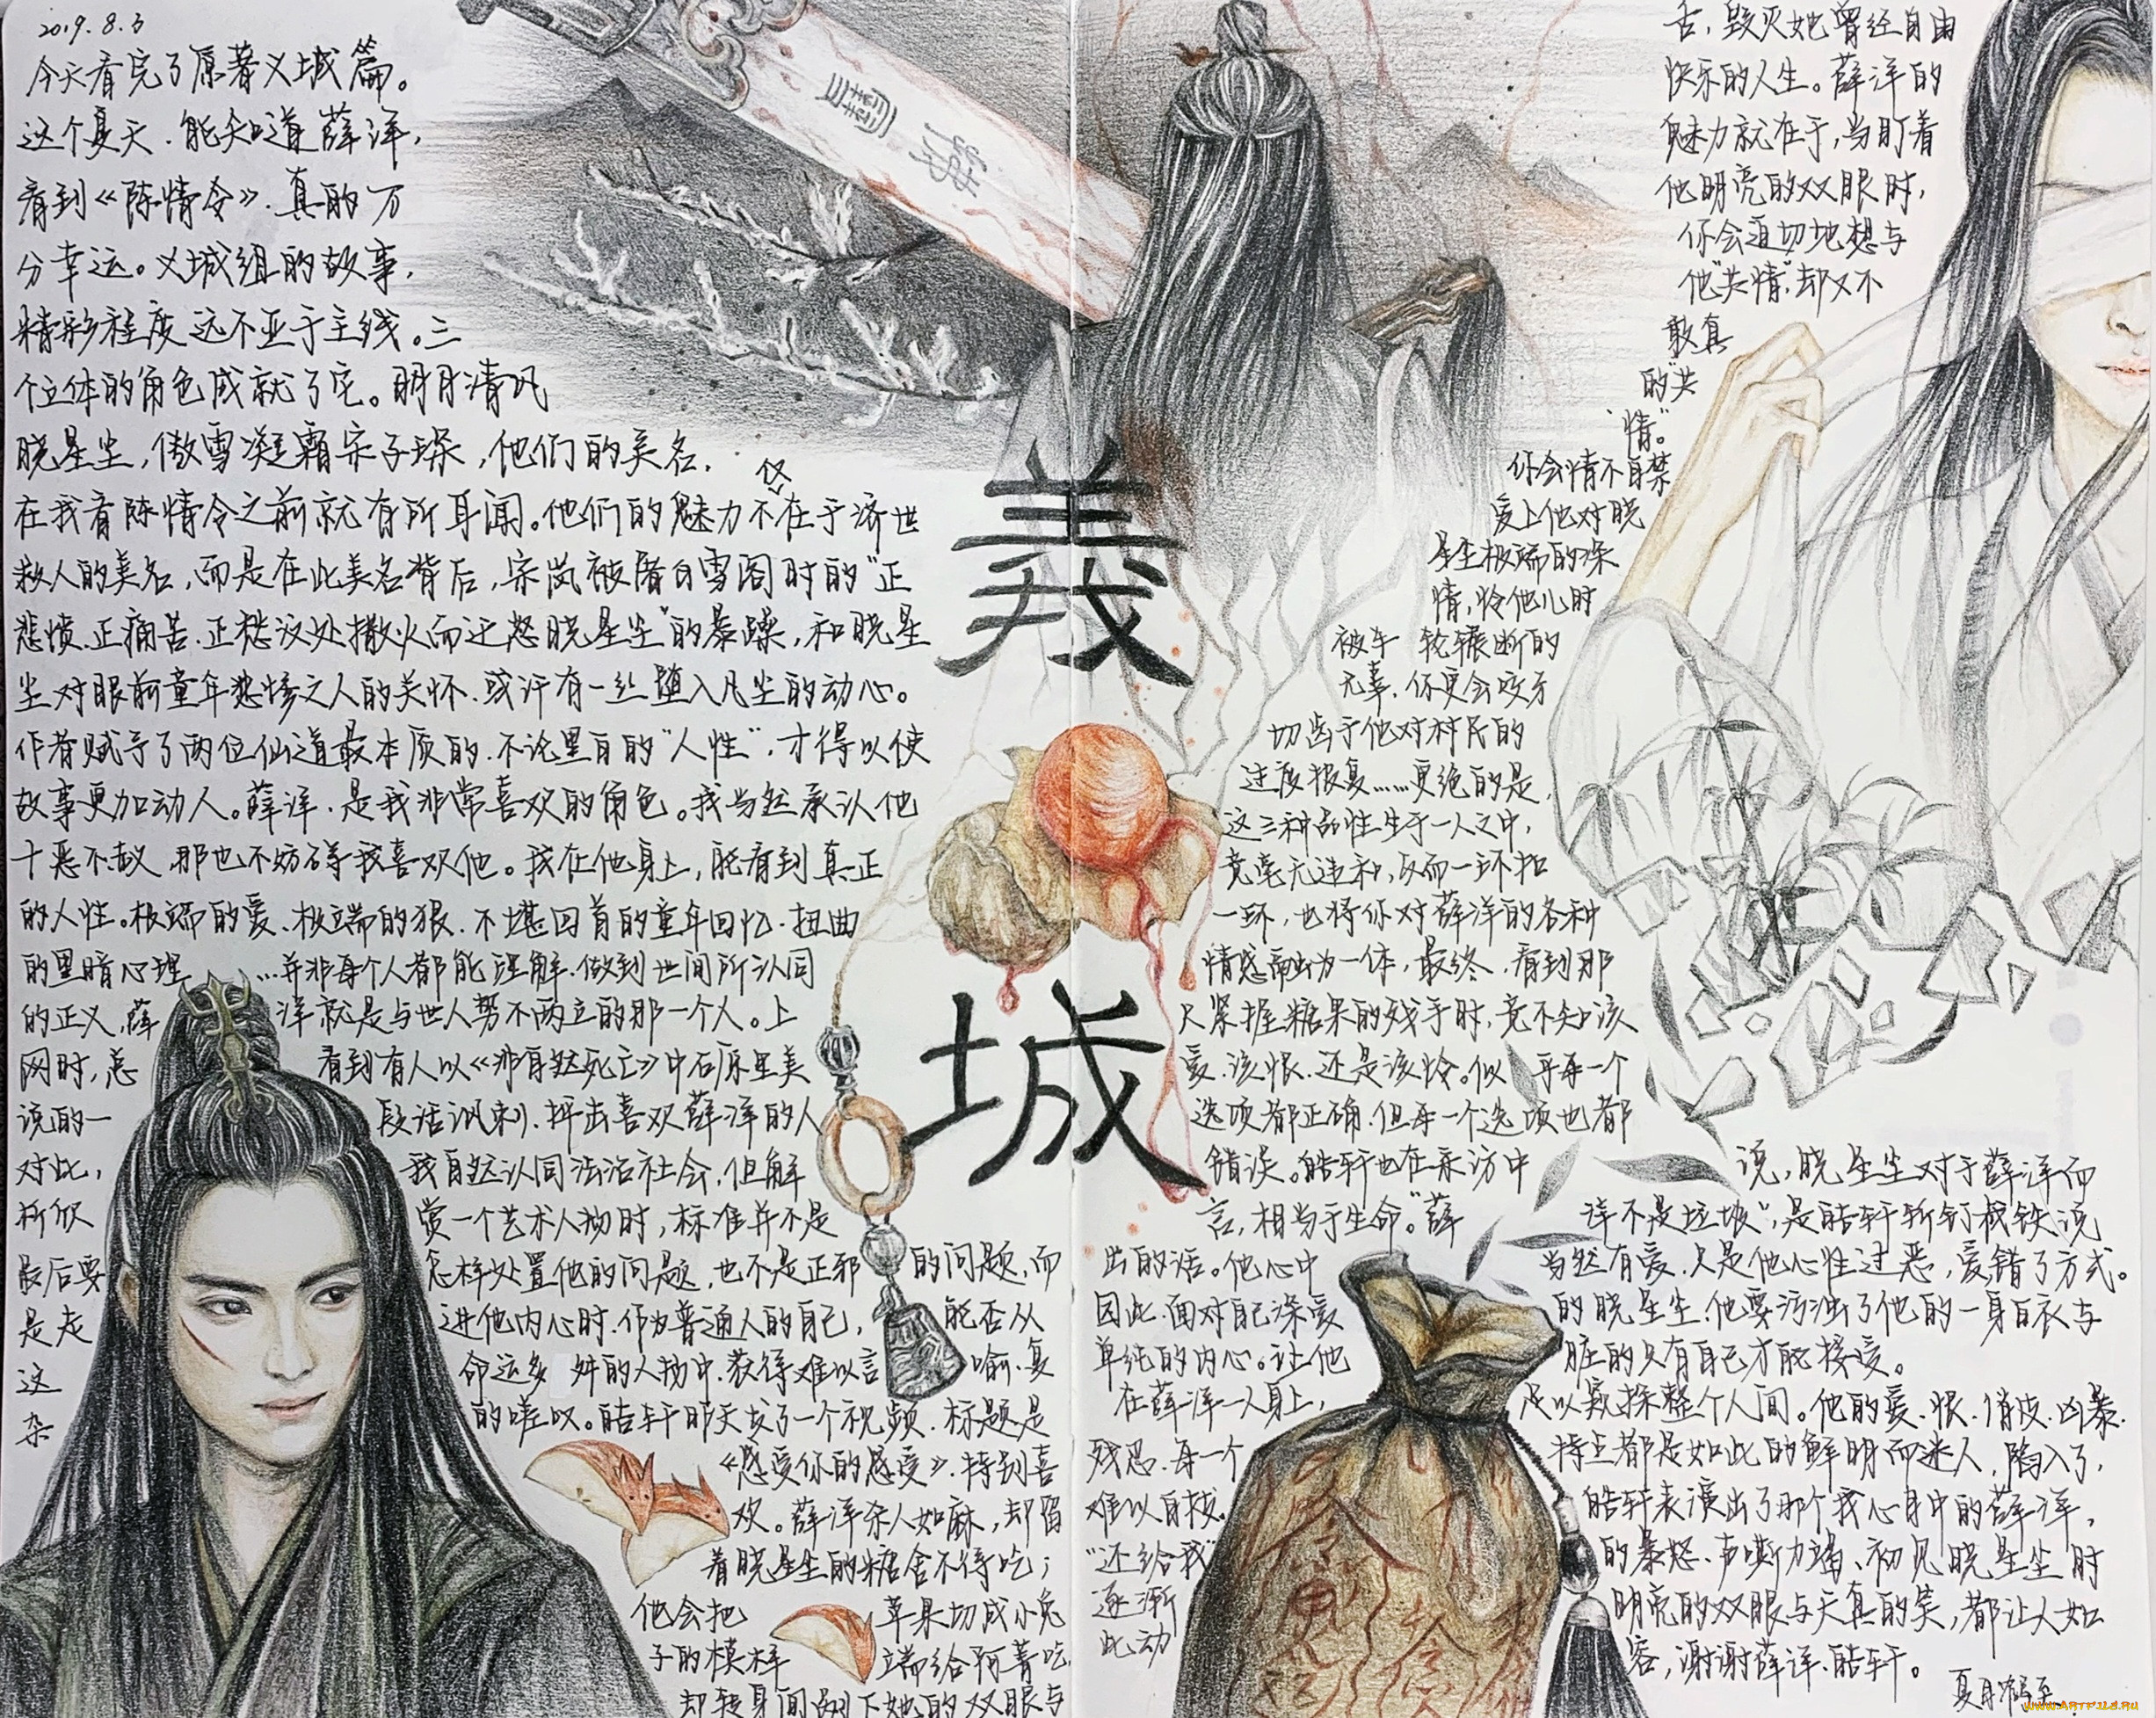 2019.8.3
今天看完了原著义城篇。
这个夏天,能知道薛洋,
看到《陈情令》,真的万
分幸运。义城组的故事,
精彩程度远不亚于主线。三
个立体的角色成就了它。明月清风
晓星尘,傲雪凌霜宋子琛,他们的美名,
在我看陈情令之前就有所耳闻。他们的魅力不仅在于济世
救人的美名,而是在此美名背后,宋岚被屠白雪阁时的“正
悲愤、正痛苦、正愁没处撒火而迁怒晓星尘”的暴躁,和晓星
尘对眼前童年悲惨之人的关怀、或许有一丝堕入凡尘的动心。
作者赋予了两位仙道最本质的、不论黑白的“人性”,才得以使
故事更加动人。薛洋,是我非常喜欢的角色。我当然承认他
十恶不赦,那也不妨碍我喜欢他。我在他身上,能看到真正
的人性。极端的爱、极端的狠、不堪回首的童年回忆、扭曲
的黑暗心理……并非每个人都能理解、做到世间所认同
的正义,薛洋就是与世人势不两立的那一个人。上
网时,总看到有人以《非自然死亡》中石原里美
说的一段话讽刺、抨击喜欢薛洋的人
对此,我自然认同法治社会,但解
析欣赏一个艺术人物时,标准并不是
最后要怎样处置他的问题,也不是正邪的问题,而
是走进他内心时,作为普通人的自己,能否从
这命运多舛的人物中,获得难以言喻、复
杂的嗟叹。皓轩昨天发了一个视频,标题是
《感受你的感受》,特别喜
欢。薛洋杀人如麻,却留
着晓星尘的糖舍不得吃;
他会把苹果切成小兔
子的模样端给阿菁吃,
却转身间剜下她的双眼与
義
城
舌,毁灭她曾经自由
快乐的人生。薛洋的
魅力就在于,当盯着
他明亮的双眼时,
你会迫切地想与
他“共情”,却又不
敢真
的“共
情”。
你会情不自禁
爱上他对晓
星尘极端的深
情,怜他儿时
被车轮辗断的
无辜,你更会咬牙
切齿于他对村民的
过度报复……更绝的是,
这三种品性生于一人之中,
竟毫无违和,反而一环扣
一环,也将你对薛洋的各种
情感融为一体,最终,看到那
只紧握糖果的残手时,竟不知该
爱、该恨、还是该怜。似乎每一个
选项都正确,但每一个选项也都
错误。皓轩也在采访中说,晓星尘对于薛洋而
言,相当于生命。“薛洋不是垃圾”,是皓轩斩钉截铁说
出的话。他心中当然有爱,只是他心性过恶,爱错了方式。
因此,面对自己深爱的晓星尘,他要污浊了他的一身白衣与
单纯的内心。让他脏的只有自己才能接受。
在薛洋一人身上,足以窥探整个人间。他的爱、恨、俏皮、凶暴、
残忍,每一个特点都是如此的鲜明而迷人,陷入了,
难以自拔。皓轩表演出了那个我心中的薛洋,
“还给我”的暴怒、声嘶力竭、初见晓星尘时
逐渐明亮的双眼与天真的笑,都让人如
此动容,谢谢薛洋、皓轩。
WWW.ARTFILE.RU